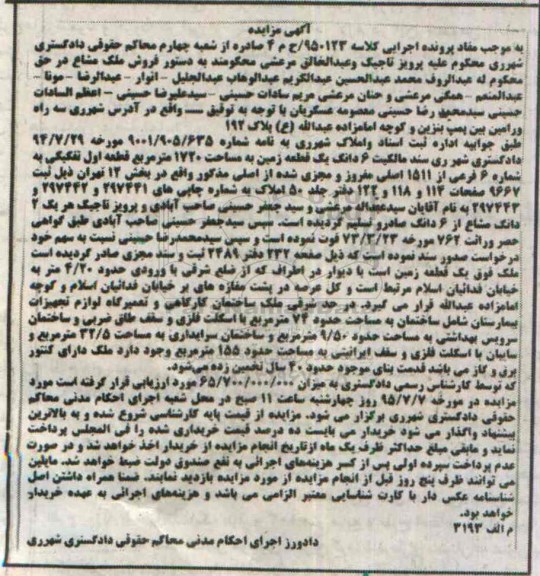 آگهی مزایده
به موجب مفاد پرونده اجرایی کلاسه ۹۵۰۱۲۳/ج م ۴ صادره از شعبه چهارم محاکم حقوقی دادگستری
شهرری محکوم علیه پرویز تاجیک وعبدالخالق مرعشی محکومند به دستور فروش ملک مشاع در حق
محکوم له عبدالروف محمد عبدالحسین عبدالکریم عبدالوهاب عبدالجلیل - انوار - عبدالرضا - مونا -
عبدالمنعم - همگی مرعشی و حنان مرعشی مریم سادات حسینی - سیدعلیرضا حسینی - اعظم السادات
حسینی سیدمحمد رضا حسینی معصومه عسگریان با توجه به توقیف واقع در آدرس شهرری سه راه
ورامین بین پمپ بنزین و کوچه امامزاده عبدالله (ع) پلاک ۱۹۲
طبق جوابیه اداره ثبت اسناد واملاک شهرری به نامه شماره ۹۰۰۱/۹۰۵/۶۳۵ مورخه ۹۴/۷/۲۹
دادگستری شهر ری سند مالکیت ۶ دانگ یک قطعه زمین به مساحت ۱۷۲۰ مترمربع قطعه اول تفکیکی به
شماره ۶ فرعی از ۱۱۵۱ اصلی مفروز و مجزی شده از اصلی مذکور واقع در بخش ۱۲ تهران ذیل ثبت
۹۶۶۷ صفحات ۱۱۴ و ۱۱۸ و ۱۲۲ دفتر جلد ۵۰ املاک به شماره چاپی های ۲۹۷۴۴۱ و ۲۹۷۴۴۲ و
۲۹۷۴۴۳ به نام آقایان سیدعبداله مرعشی و سید جعفر حسینی صاحب آبادی و پرویز تاجیک هر یک ۲
دانگ مشاع از ۶ دانگ صادرو تسلیم گردیده است. سپس سیدجعفر حسینی صاحب آبادی طبق گواهی
حصر وراثت ۷۶۲ مورخه ۷۳/۲/۲۳ فوت نموده است و سپس سیدمحمدرضا حسینی نسبت به سهم خود
درخواست صدور سند نموده است که ذیل صفحه ۲۳۲ دفتر ۲۴۸۹ ثبت و سند مجزی صادر گردیده است
ملک فوق یک قطعه زمین است با دیوار در اطراف که از ضلع شرقی با ورودی حدود ۴/۲۰ متر به
خیابان فدائیان اسلام مرتبط است و کل عرصه در پشت مغازه های بر خیابان فدائیان اسلام و کوچه
امامزاده عبدالله قرار می گیرد. در حد شرقی ملک ساختمان کارگاهی و تعمیرگاه لوازم تجهیزات
بیمارستان شامل ساختمان به مساحت حدود ۷۴ مترمربع با اسکلت فلزی و سقف طاق ضربی و ساختمان
سرویس بهداشتی به مساحت حدود ۹/۵۰ مترمربع و ساختمان سرایداری به مساحت ۳۲/۵ مترمربع و
سایبان با اسکلت فلزی و سقف ایرانیتی به مساحت حدود ۱۵۵ مترمربع وجود دارد ملک دارای کنتور
برق و گاز می باشد قدمت بنای موجود حدود ۴۰ سال تخمین زده می‌شود.
که توسط کارشناس رسمی دادگستری به میزان ۶۵/۷۰۰/۰۰۰/۰۰۰ مورد ارزیابی قرار گرفته است مورد
مزایده در مورخه ۹۵/۷/۷ روز چهارشنبه ساعت ۱۱ صبح در محل شعبه اجرای احکام مدنی محاکم
حقوقی دادگستری شهرری برگزار می شود. مزایده از قیمت پایه کارشناسی شروع شده و به بالاترین
پیشنهاد واگذار می شود خریدار می بایست ده درصد قیمت خریداری شده را فی المجلس پرداخت
نماید و مابقی مبلغ حداکثر ظرف یک ماه ازتاریخ انجام مزایده از خریدار اخذ خواهد شد و در صورت
عدم پرداخت سپرده اولی پس از کسر هزینه‌های اجرائی به نفع صندوق دولت ضبط خواهد شد. مایلین
می توانند ظرف پنج روز قبل از انجام مزایده از مورد مزایده بازدید نمایند. ضمنا همراه داشتن اصل
شناسنامه عکس دار یا کارت شناسایی معتبر الزامی می باشد و هزینه‌های اجرائی به عهده خریدار
خواهد بود.
م الف ۳۱۹۳
دادورز اجرای احکام مدنی محاکم حقوقی دادگستری شهرری